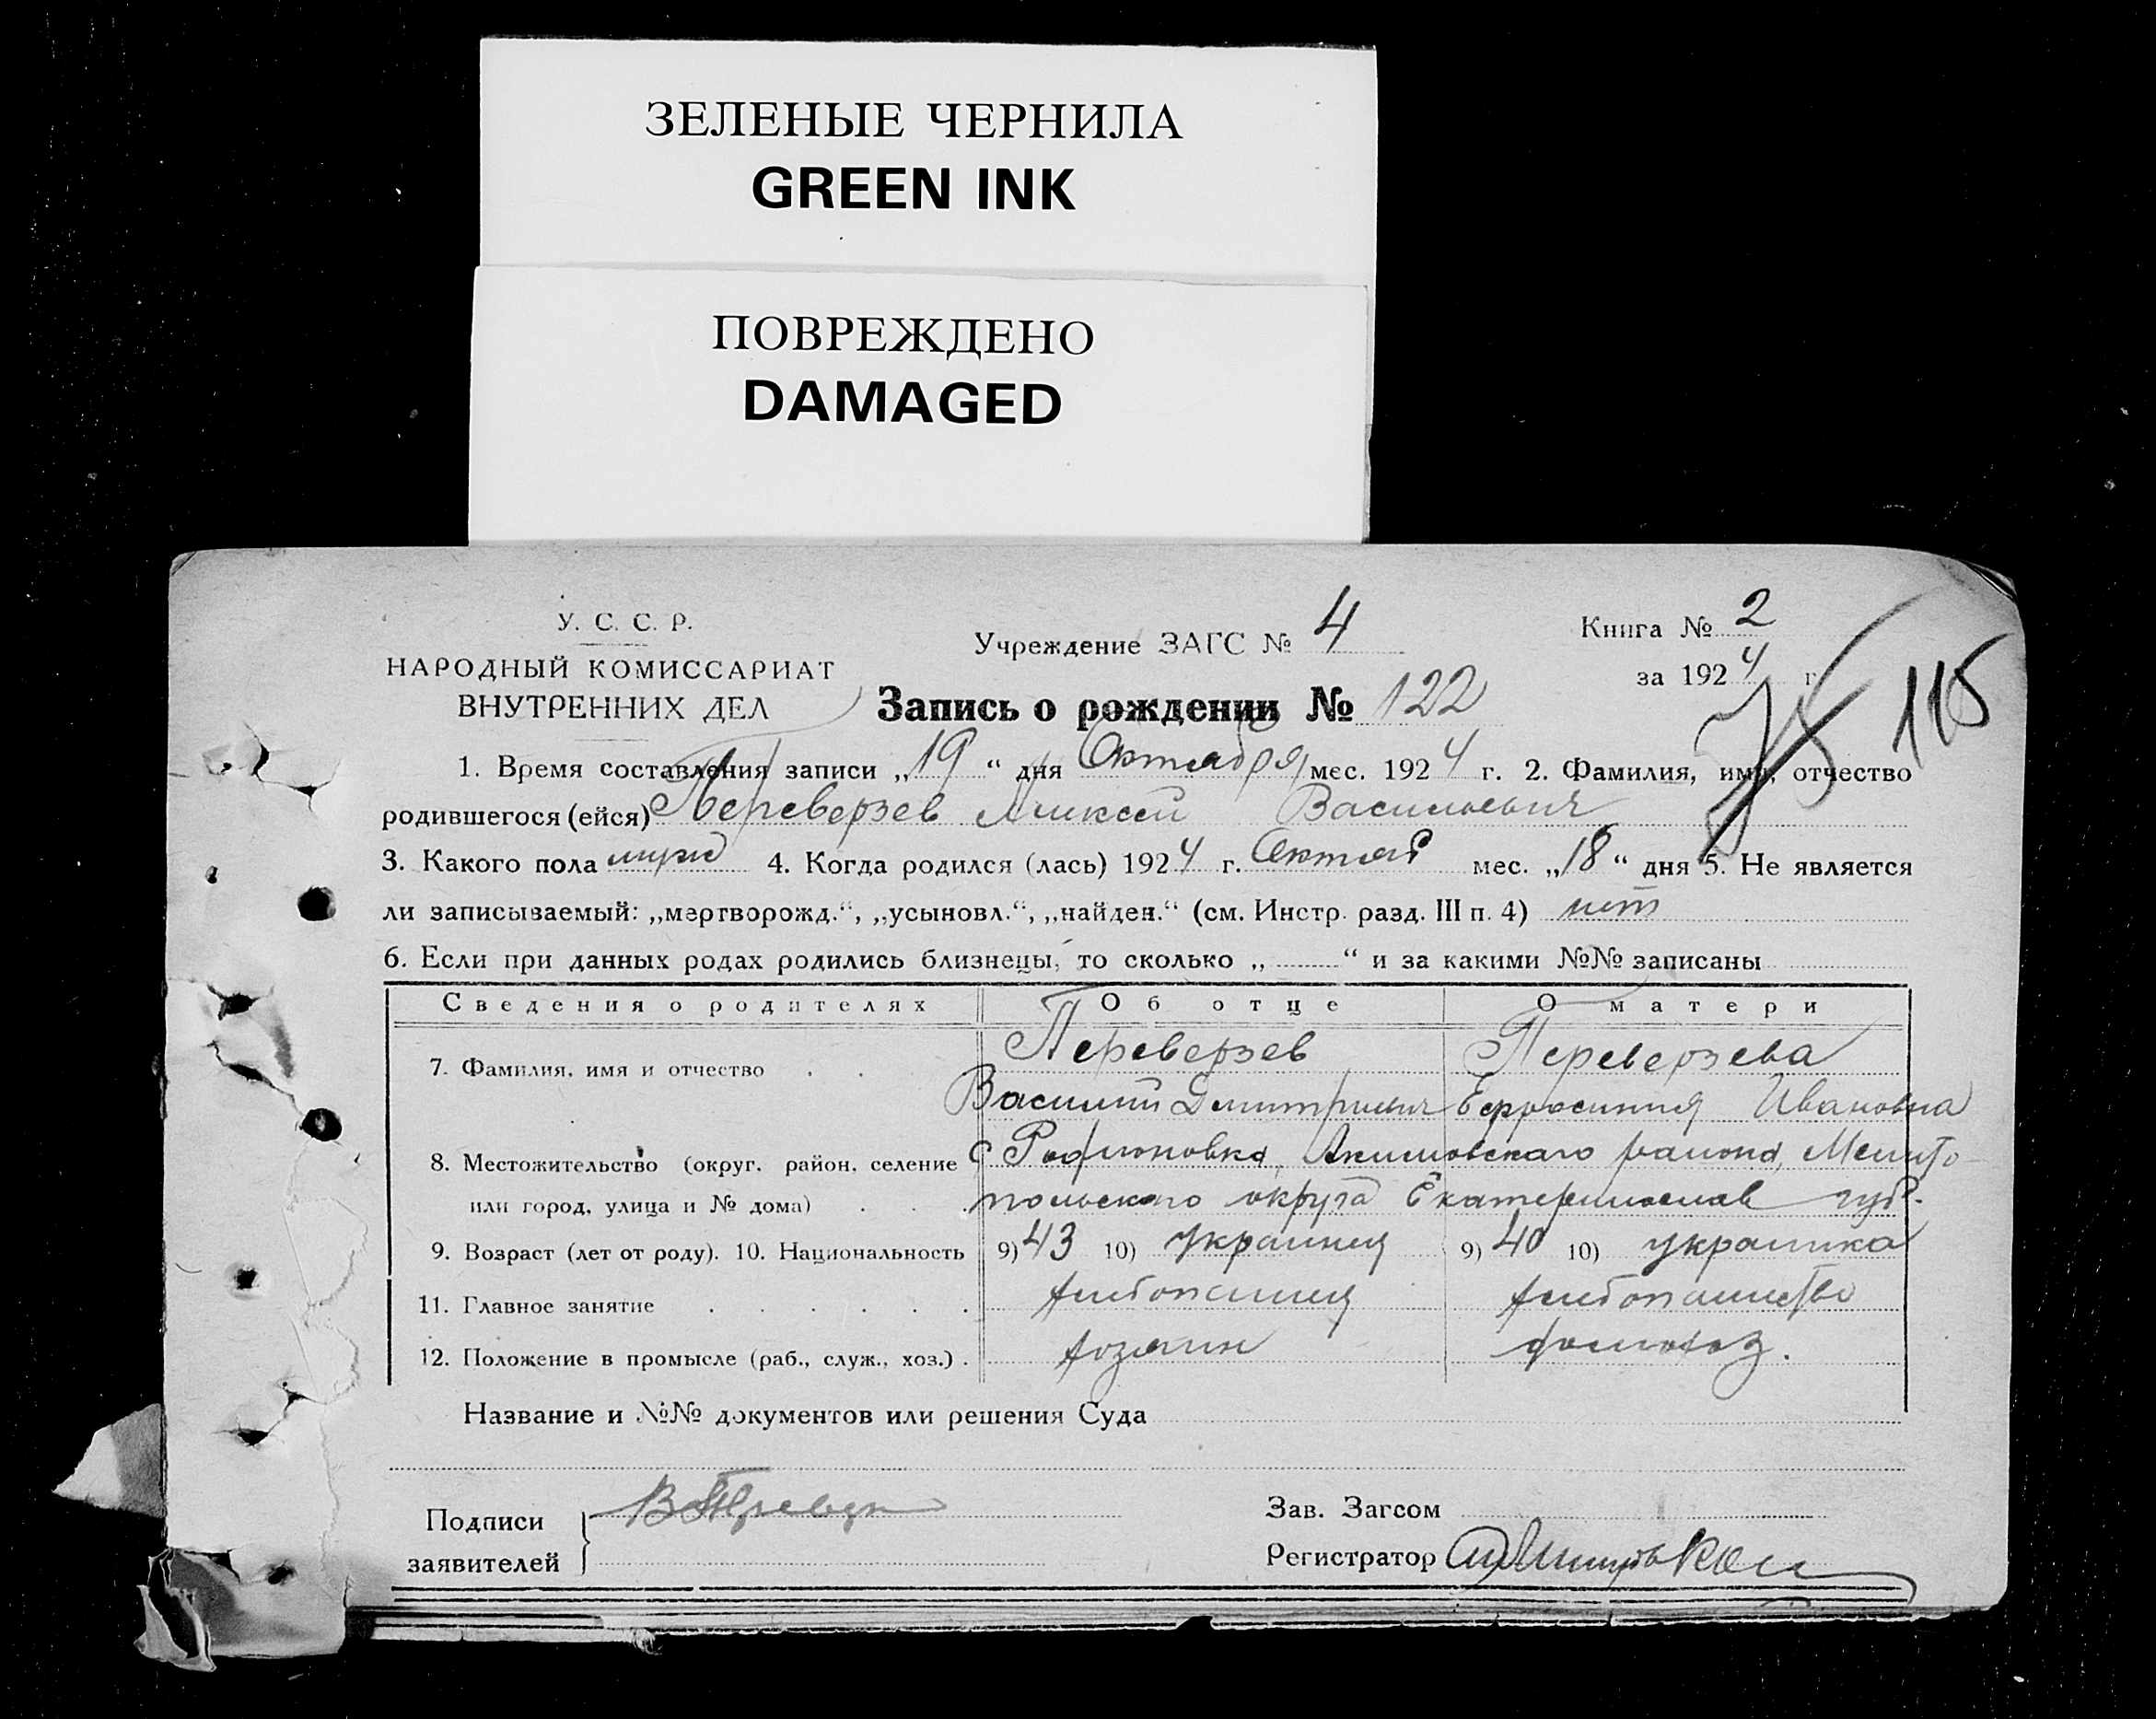 ЗЕЛЕНЫЕ ЧЕРНИЛА
GREEN INK
ПОВРЕЖДЕНО
DAMAGED
У. С. С. Р.
НАРОДНЫЙ КОМИССАРИАТ
ВНУТРЕННИХ ДЕЛ
Учреждение ЗАГС № 4
Книга № 2
за 1924 г.
115
Запись о рождении № 122
1. Время составления записи „19“ дня Октября мес. 1924 г. 2. Фамилия, имя, отчество
родившегося (ейся) Переверзев Алексей Васильевич
3. Какого пола муж 4. Когда родился (лась) 1924 г. Октяб мес. „18“ дня 5. Не является
ли записываемый: „мертворожд.“, „усыновл.“, „найден.“ (см. Инстр. разд. III п. 4) нет
6. Если при данных родах родились близнецы, то сколько „ “ и за какими №№ записаны
Сведения о родителях Об отце О матери
7. Фамилия, имя и отчество . . Переверзев Переверзева
Василий Дмитриевич Ефросиния Ивановна
8. Местожительство (округ, район, селение с Родионовка, Акимовскаго района, Мелито-
или город, улица и № дома) . . . польского округа Екатеринослав губ.
9. Возраст (лет от роду). 10. Национальность 9) 43 10) украинец 9) 40 10) украинка
11. Главное занятие . . . . . . хлебопашец хлебопашество
12. Положение в промысле (раб., служ., хоз.) . хозяин домохоз.
Название и №№ документов или решения Суда
Подписи
заявителей
Зав. Загсом
Регистратор